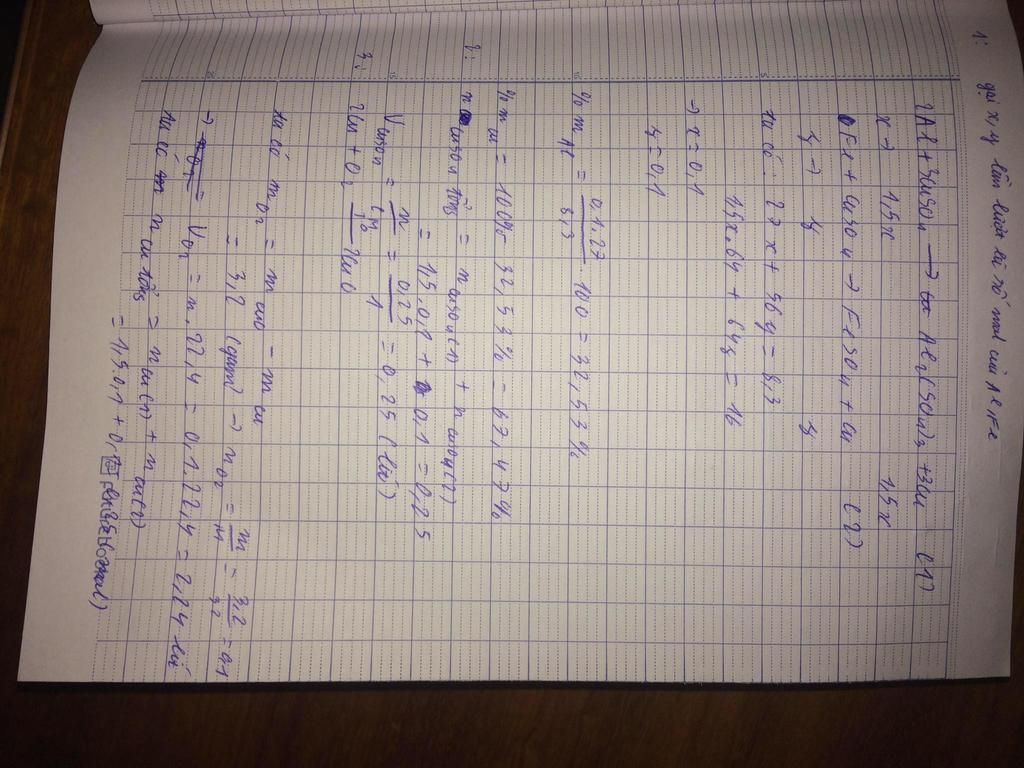 1: gọi x, y lần lượt là số mol của Al, Fe
2Al + 3CuSO4 → Al2(SO4)3 + 3Cu (1)
x → 1,5x 1,5x
Fe + CuSO4 → FeSO4 + Cu (2)
y → y y
ta có: 27x + 56y = 8,3
1,5x.64 + 64y = 16
→ x = 0,1
y = 0,1
% mAl = 0,1.27/8,3 . 100 = 32,53%
% m Cu = 100% - 32,53% = 67,47%
2: n CuSO4 tổng = n CuSO4(1) + n CuSO4(2)
= 1,5.0,1 + 0,1 = 0,25
V CuSO4 = n/CM = 0,25/1 = 0,25 (lít)
3: 2Cu + O2 to→ 2CuO
ta có mO2 = m CuO - m Cu
= 3,2 (gam) → nO2 = m/M = 3,2/32 = 0,1
→ VO2 = n.22,4 = 0,1.22,4 = 2,24 lít
ta có n Cu tổng = n Cu(1) + n Cu(2)
= 1,5.0,1 + 0,1